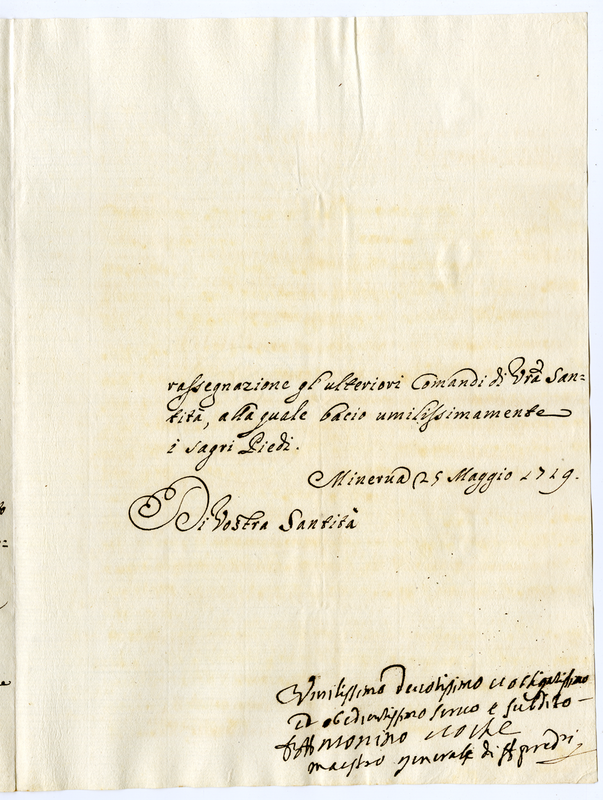 rassegnazione gl'ulteriori Comandi di Vrã San=
tità, alla quale bacio umilissimamente
i sagri Piedi.
Minerva 25 Maggio 1719.
Di Vostra Santità
Umilissimo devotissimo et obligatissimo
et obedientissimo servo e suddito
fr Antonino Cloche
maestro generale di pred.ri